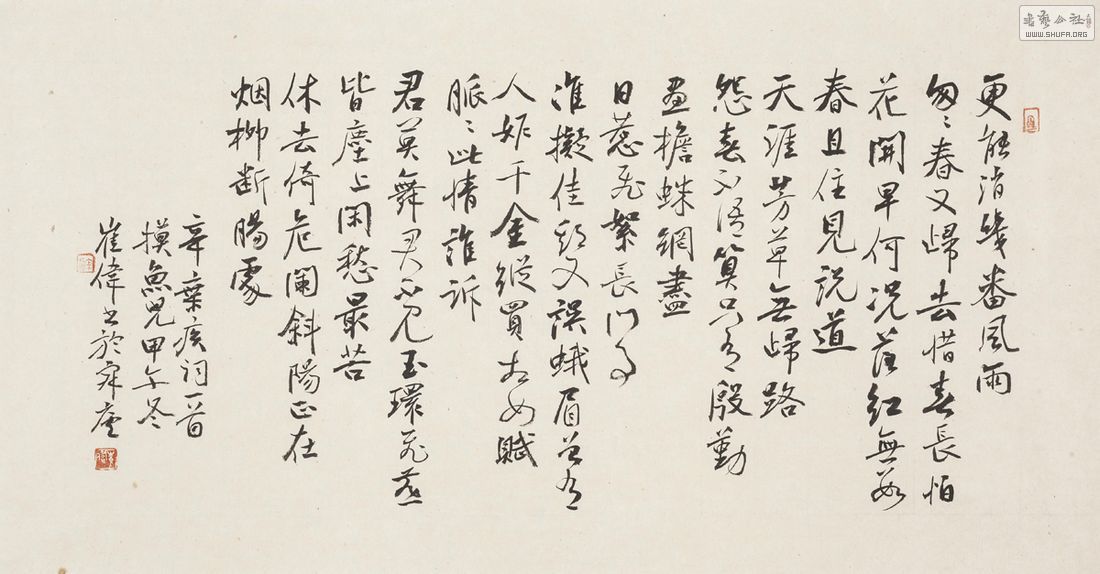 更能消幾番風雨
匆〻春又歸去惜春長怕
花開早何況落紅無數
春且住見說道
天涯芳草无歸路
怨春不語算只有殷勤
畫檐蛛網盡
日惹飛絮長門事
准擬佳期又誤蛾眉曾有
人妒千金縱買相如賦
脈〻此情誰訴
君莫舞君不見玉環飛燕
皆塵土閑愁最苦
休去倚危闌斜陽正在
烟柳斷腸處
辛棄疾詞一首
摸魚兒甲午冬
崔偉書於舜廬
書藝公社
WWW.SHUFA.ORG